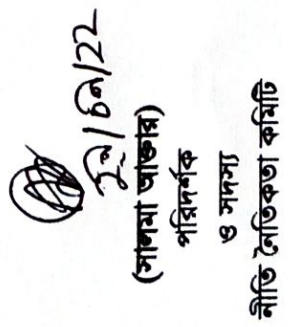 (সালমা আক্তার)
পরিদর্শক
ও সদস্য
নীতি নৈতিকতা কমিটি